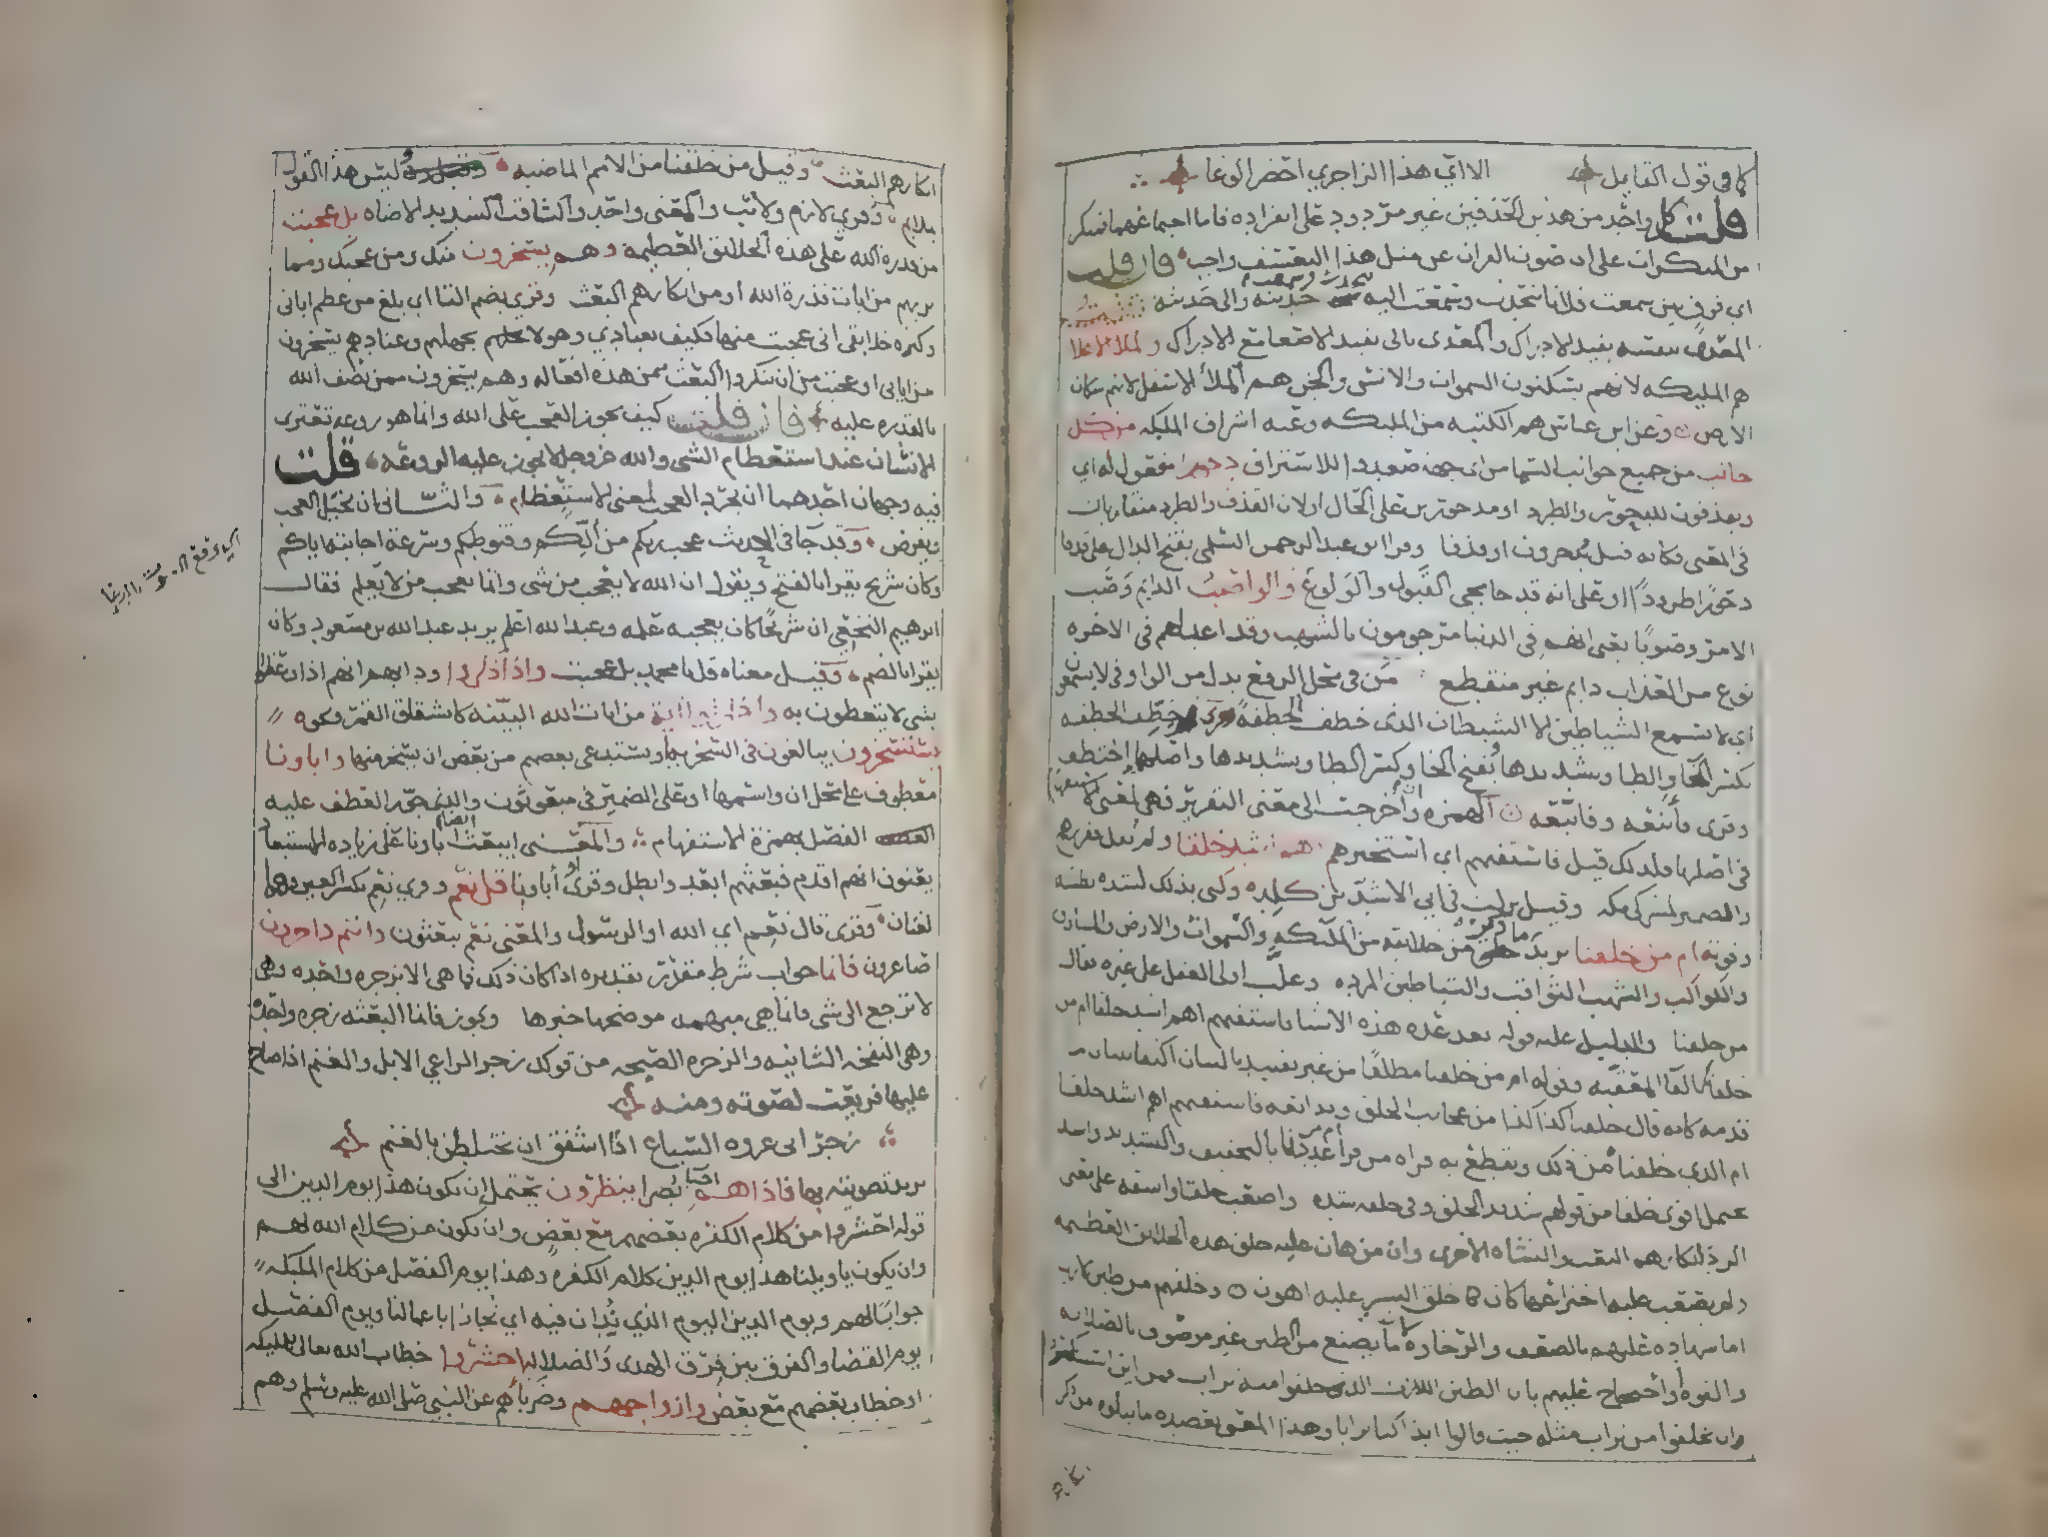 كما في قول القايل الا اي هذا الزاجري احضر الوغا
قلت كل واحد من هذين الحذفين غير مردود على انفراده فاما اجتماعهما فمنكر
من المنكرات على ان صون القران عن مثل هذا التعسف واجب فان قلت
اي فرق بين سمعت فلانا يتحدث وسمعت اليه يتحدث وسمعت حديثه والى حديثه
المعدى بنفسه يفيد الادراك والمعدى بالى يفيد الاصغا مع الادراك والملا الاعلا
هم المليكه لانهم يسكنون السموات والانس والجن هم الملأ الاسفل لانهم سكان
الارض وعن ابن عباس هم الكتبه من المليكه وعنه اشراف المليكه من كل
جانب من جميع جوانب السما من اي جهه صعدوا للاستراق دحورا مفعول له اي
ويقذفون للدحور والطرد او مدحورين على الحال او لان القذف والطرد متقاربان
في المعنى فكانه قيل يدحرون او قذفا وقرا ابو عبد الرحمن السلمي بفتح الدال على قذفا
دحورا طرودا او على انه قد جا مجي القبول والولوع والواصب الدايم وصب
الامر وصوبا يعني انهم في الدنيا مرجومون بالشهب وقد اعد لهم في الاخره
نوع من العذاب دايم غير منقطع من في محل الرفع بدل من الواو في لا يسمعون
اي لا يسمع الشياطين الا الشيطان الذي خطف الخطفة وقرى خطف الخطفه
بكسر الخا والطا وتشديدها وبفتح الخا وكسر الطا وتشديدها واصلهما اختطف
وقرى فأتبعه وفاتبعه الهمزه وان خرجت الى معنى التقرير فهي لمعنى الاستفهام
في اصلها فلذلك قيل فاستفتهم اي استخبرهم اهم اشد خلقا ولم يقل فقررهم
والضمير لمشركي مكه وقيل نزلت في ابي الاشد بن كلده وكني بذلك لشده بطشه
وقوته ام من خلقنا يريد ما ذكره من خلايقه من المليكه والسموات والارض والمشارق
والكواكب والشهب الثواقب والشياطين المرده وغلب اولي العقل على غيره فقال
من خلقنا والدليل عليه قوله بعد عده هذه الاشيا فاستفتهم اهم اشد خلقا ام من
خلقنا بالفا المعقبه وقوله ام من خلقنا مطلقا من غير تقييد بالبيان اكتفا ببيان ما
قدمه كانه قال خلقنا كذا وكذا من عجايب الخلق وبدايعه فاستفتهم اهم اشد خلقا
ام الذي خلقناه من ذلك ويقطع به قراه من قرا ام من عددنا بالتخفيف والتشديد واشد
يحتمل اقوى خلقا من قولهم شديد الخلق وفي خلقه شده واصعب خلقا واشقه على معنى
الرد لانكارهم البعث والنشاه الاخرى وان من هان عليه خلق هذه الخلايق العظيمه
ولم يصعب عليه اختراعها كان خلق البشر عليه اهون وخلقهم من طين لازب
اما شهاده عليهم بالضعف والرخاوه لان ما يصنع من الطين غير موصوف بالصلابه
والقوه او احتجاج عليهم بان الطين اللازب الذي خلقوا منه تراب فمن اين استنكروا
ان يخلقوا من تراب مثله حيث قالوا ايذا كنا ترابا وهذا المعنى يعضده ما يتلوه من ذكر
انكارهم البعث وقيل من خلقنا من الامم الماضيه وليس هذا القول
بملايم وقري لازم ولاتب والمعنى واحد والثاقب الشديد الاضاه بل عجبت
من قدره الله على هذه الخلايق العظيمة وهم يسخرون منك ومن تعجبك ومما
تريهم من ايات قدرة الله او من انكارهم البعث وقري بضم التا اي بلغ من عظم اياتي
وكثره خلايقي اني عجبت منها فكيف بعبادي وهولا بجهلهم وعنادهم يسخرون
من اياتي او عجبت من ان ينكروا البعث ممن هذه افعاله وهم يسخرون ممن يصف الله
بالقدره عليه فان قلت كيف يجوز العجب على الله وانما هو روعه تعتري
الانسان عند استعظام الشي والله عز وجل لا يجوز عليه الروعه قلت
فيه وجهان احدهما ان يجرد العجب لمعنى الاستعظام والثاني ان يخيل العجب
ويفرض وقد جا في الحديث عجب ربكم من ألكم وقنوطكم وسرعة اجابته اياكم
وكان شريح يقرا بالفتح ويقول ان الله لا يعجب من شي وانما يعجب من لا يعلم فقال
ابرهيم النخعي ان شريحا كان يعجبه علمه وعبد الله اعلم يريد عبد الله بن مسعود وكان
يقرا بالضم وقيل معناه قل يا محمد بل عجبت واذا ذكروا ودابهم انهم اذا وعظوا
بشي لا يتعظون به واذا راوا اية من ايات الله البينه كانشقاق القمر ونحوه
يستسخرون يبالغون في السخريه او يستدعي بعضهم من بعض ان يسخر منها واباونا
معطوف على محل ان واسمها او على الضمير في مبعوثون والذي جوز العطف عليه
الفصل بهمزة الاستفهام والمعنى ايبعث ايضا اباونا على زياده الاستبعاد
يعنون انهم اقدم فبعثهم ابعد وابطل وقرى أو أباونا قل نعم وقري نعم بكسر العين وهما
لغتان وقرى قال نعم اي الله او الرسول والمعنى نعم تبعثون وانتم داخرون
صاغرون فانما جواب شرط مقدر تقديره اذا كان ذلك فما هي الا زجره واحده وهي
لا ترجع الى شي فانما هي مبهمه موضحها خبرها ويجوز فانما البعثه زجره واحده
وهي النفخه الثانيه والزجره الصيحه من قولك زجر الراعي الابل والغنم اذا صاح
عليها فريعت لصوته ومنه
زجر ابي عروه السباع اذا اشفق ان يختلطن بالغنم
يريد تصويته بها فاذا هم احيا بصرا ينظرون يحتمل ان يكون هذا يوم الدين الى
قوله احشروا من كلام الكفره بعضهم مع بعض وان يكون من كلام الله لهم
وان يكون يا ويلنا هذا يوم الدين كلام الكفره وهذا يوم الفصل من كلام المليكه
جوابا لهم ويوم الدين اليوم الذي ندان فيه اي نجازا باعمالنا ويوم الفصل
يوم القضا والفرق بين فرق الهدى والضلاله احشروا خطاب الله تعالى للمليكه
او خطاب بعضهم مع بعض وازواجهم وضرباهم عن النبي صلى الله عليه وسلم وهم